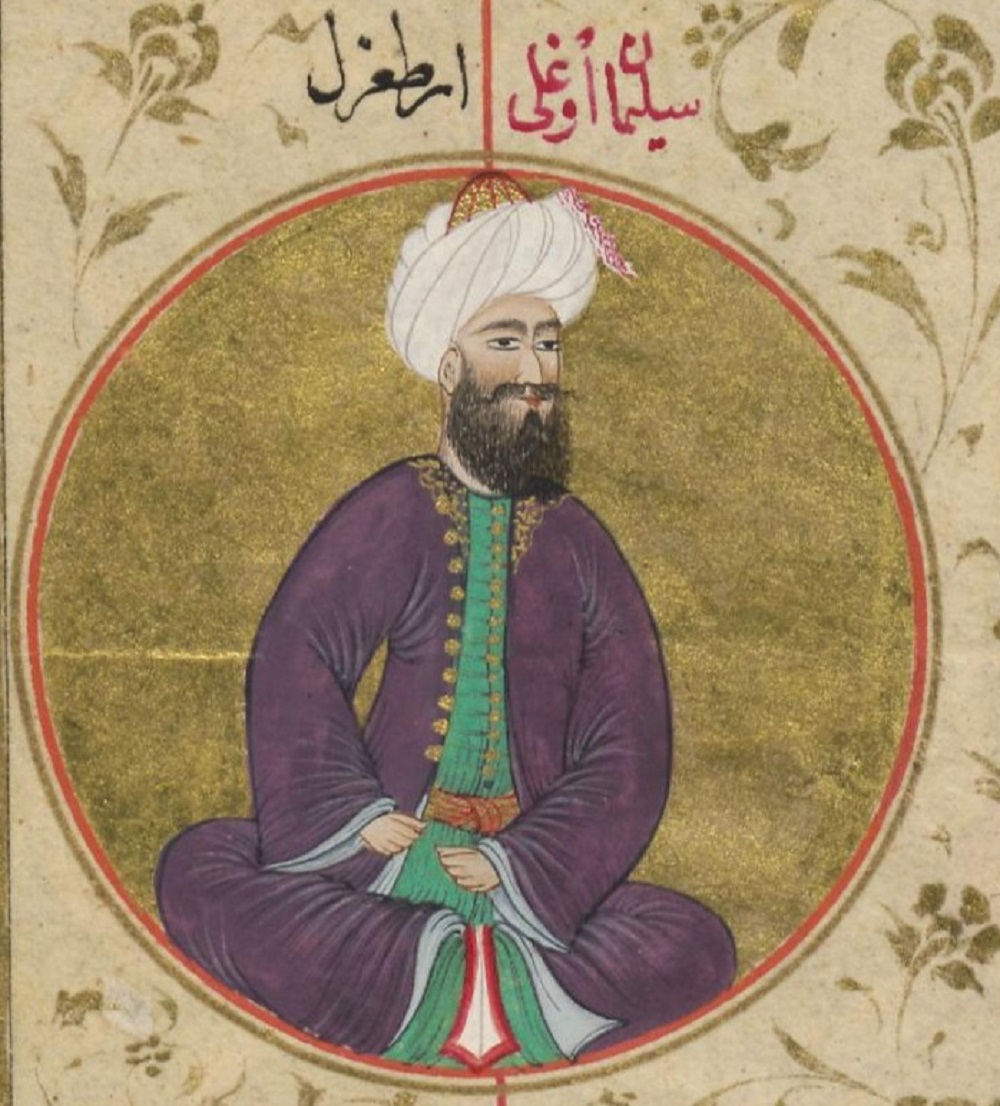 سليمان اوغلى ارطغرل